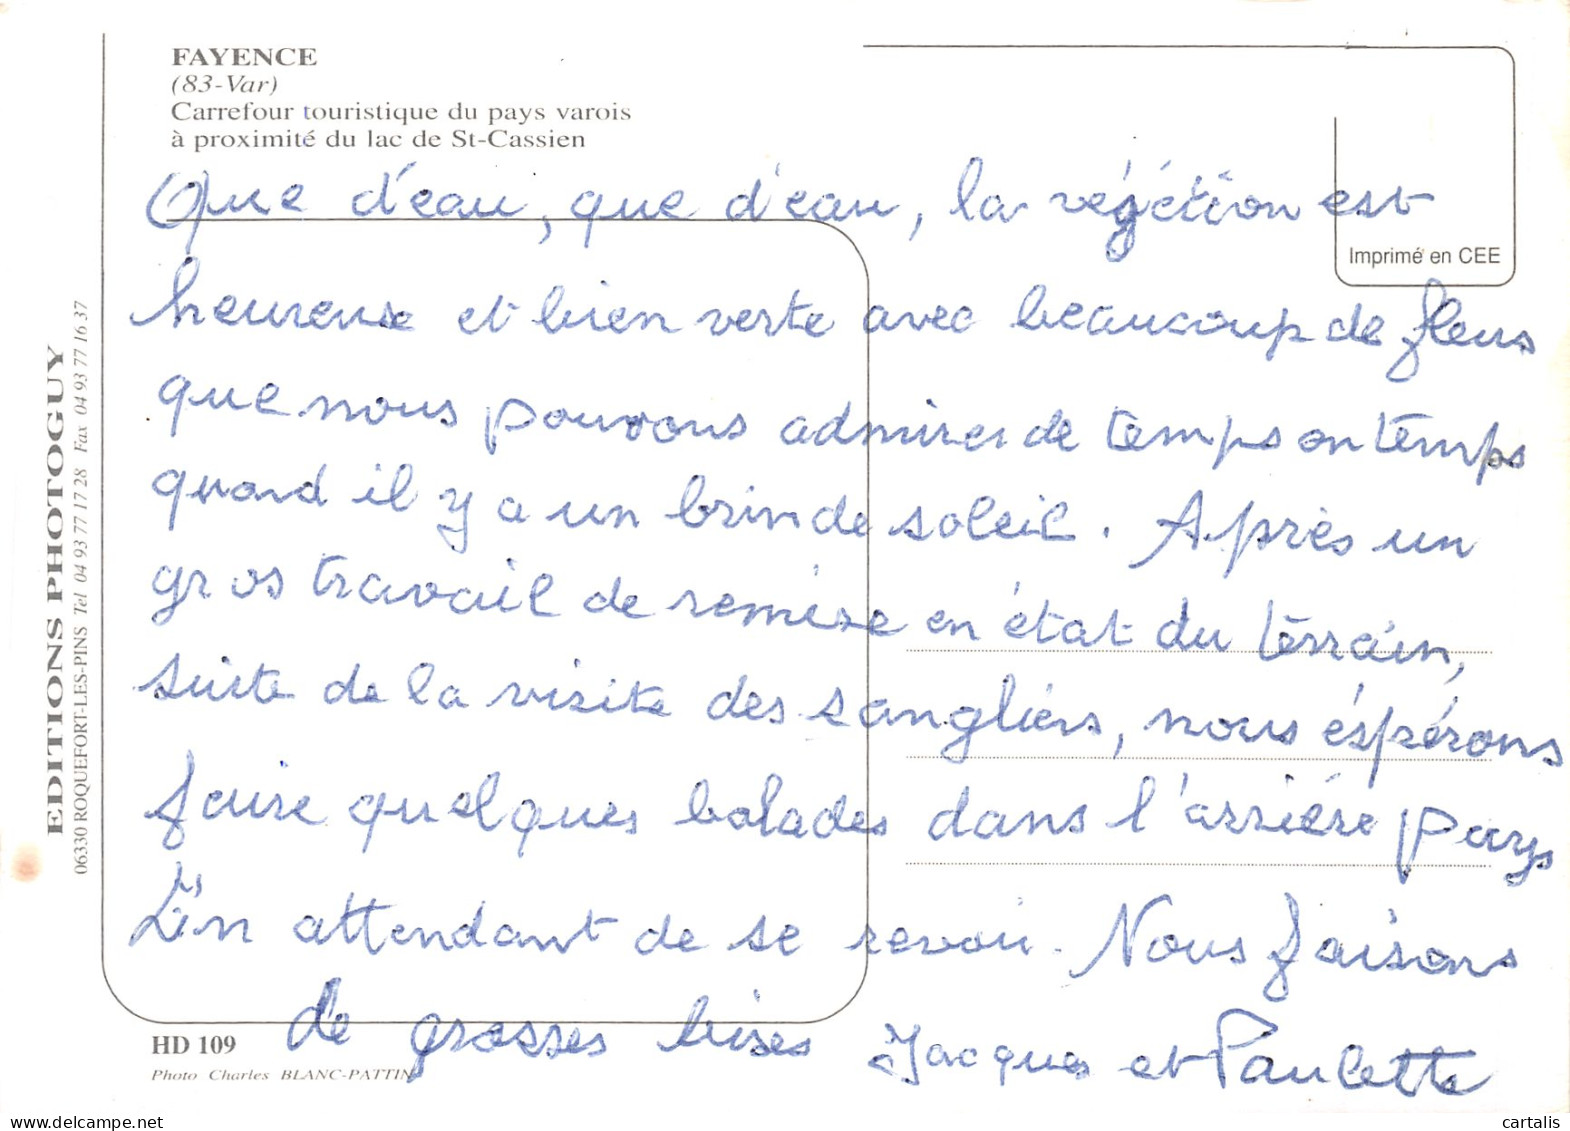 FAYENCE
(83-Var)
Carrefour touristique du pays varois
à proximité du lac de St-Cassien
Imprimé en CEE
Que d'eau, que d'eau, la végétion est
heureuse et bien verte avec beaucoup de fleurs
que nous pouvons admirer de temps en temps
quand il y a un brin de soleil. Après un
gros travail de remise en état du terrain,
suite de la visite des sangliers, nous éspérons
faire quelques balades dans l'arrière pays
En attendant de se revoir. Nous faisons
de grosses bises Jacques et Paulette
HD 109
Photo Charles BLANC-PATTIN
EDITIONS PHOTOGUY
06330 ROQUEFORT-LES-PINS Tel 04 93 77 17 28 Fax 04 93 77 16 37
www.delcampe.net
cartalis